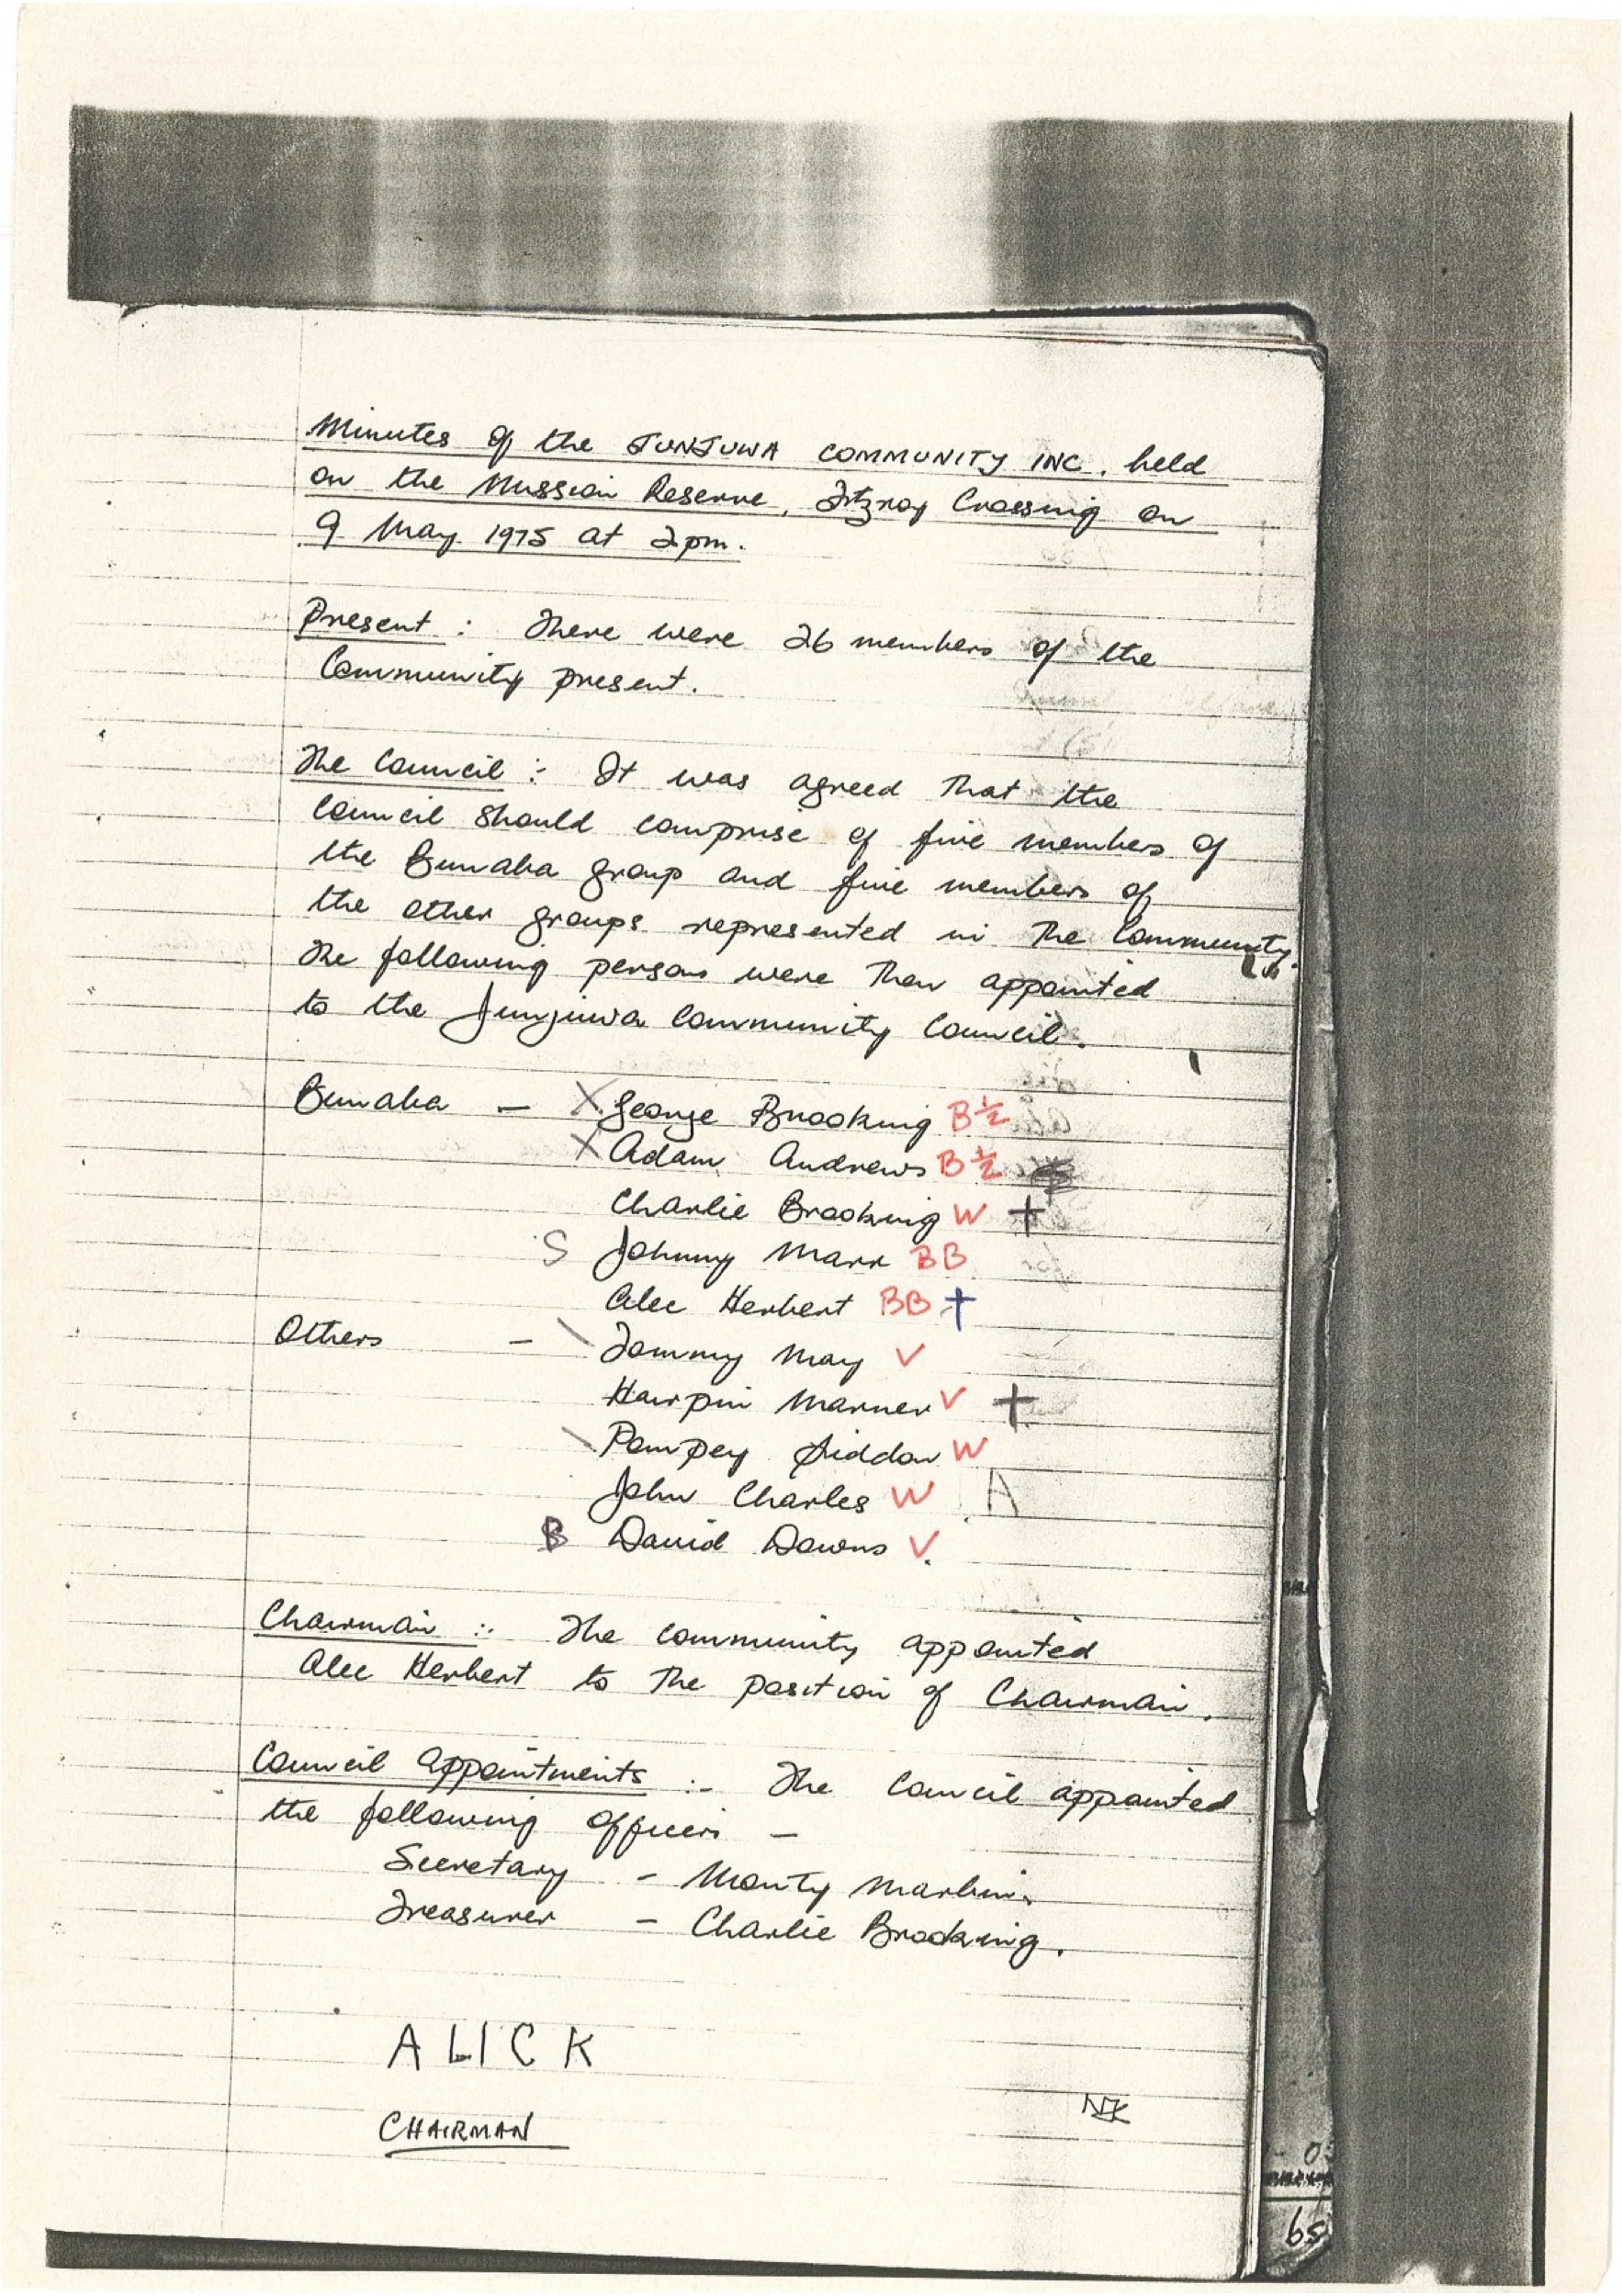 Minutes of the JUNJUWA COMMUNITY INC. held
on the Mission Reserve, Fitzroy Crossing on
9 May 1975 at 2pm.
Present : There were 26 members of the
Community present.
The Council :- It was agreed that the
Council should comprise of five members of
the Bunaba group and five members of
the other groups represented in the Community.
The following persons were then appointed
to the Junjuwa Community Council.
Bunaba – X George Brooking B½
X Adam Andrews B½
Charlie Brooking W +
S Johnny Marr BB
Alec Herbert BB +
Others – \ Tommy May V
Hairpin Marner V +
\ Pompey Siddon W
John Charles W A
B David Downs V.
Chairman :- The community appointed
Alec Herbert to the position of Chairman.
Council Appointments :- The Council appointed
the following officers –
Secretary – Monty
Treasurer – Charlie Brooking.
ALICK
CHAIRMAN
65